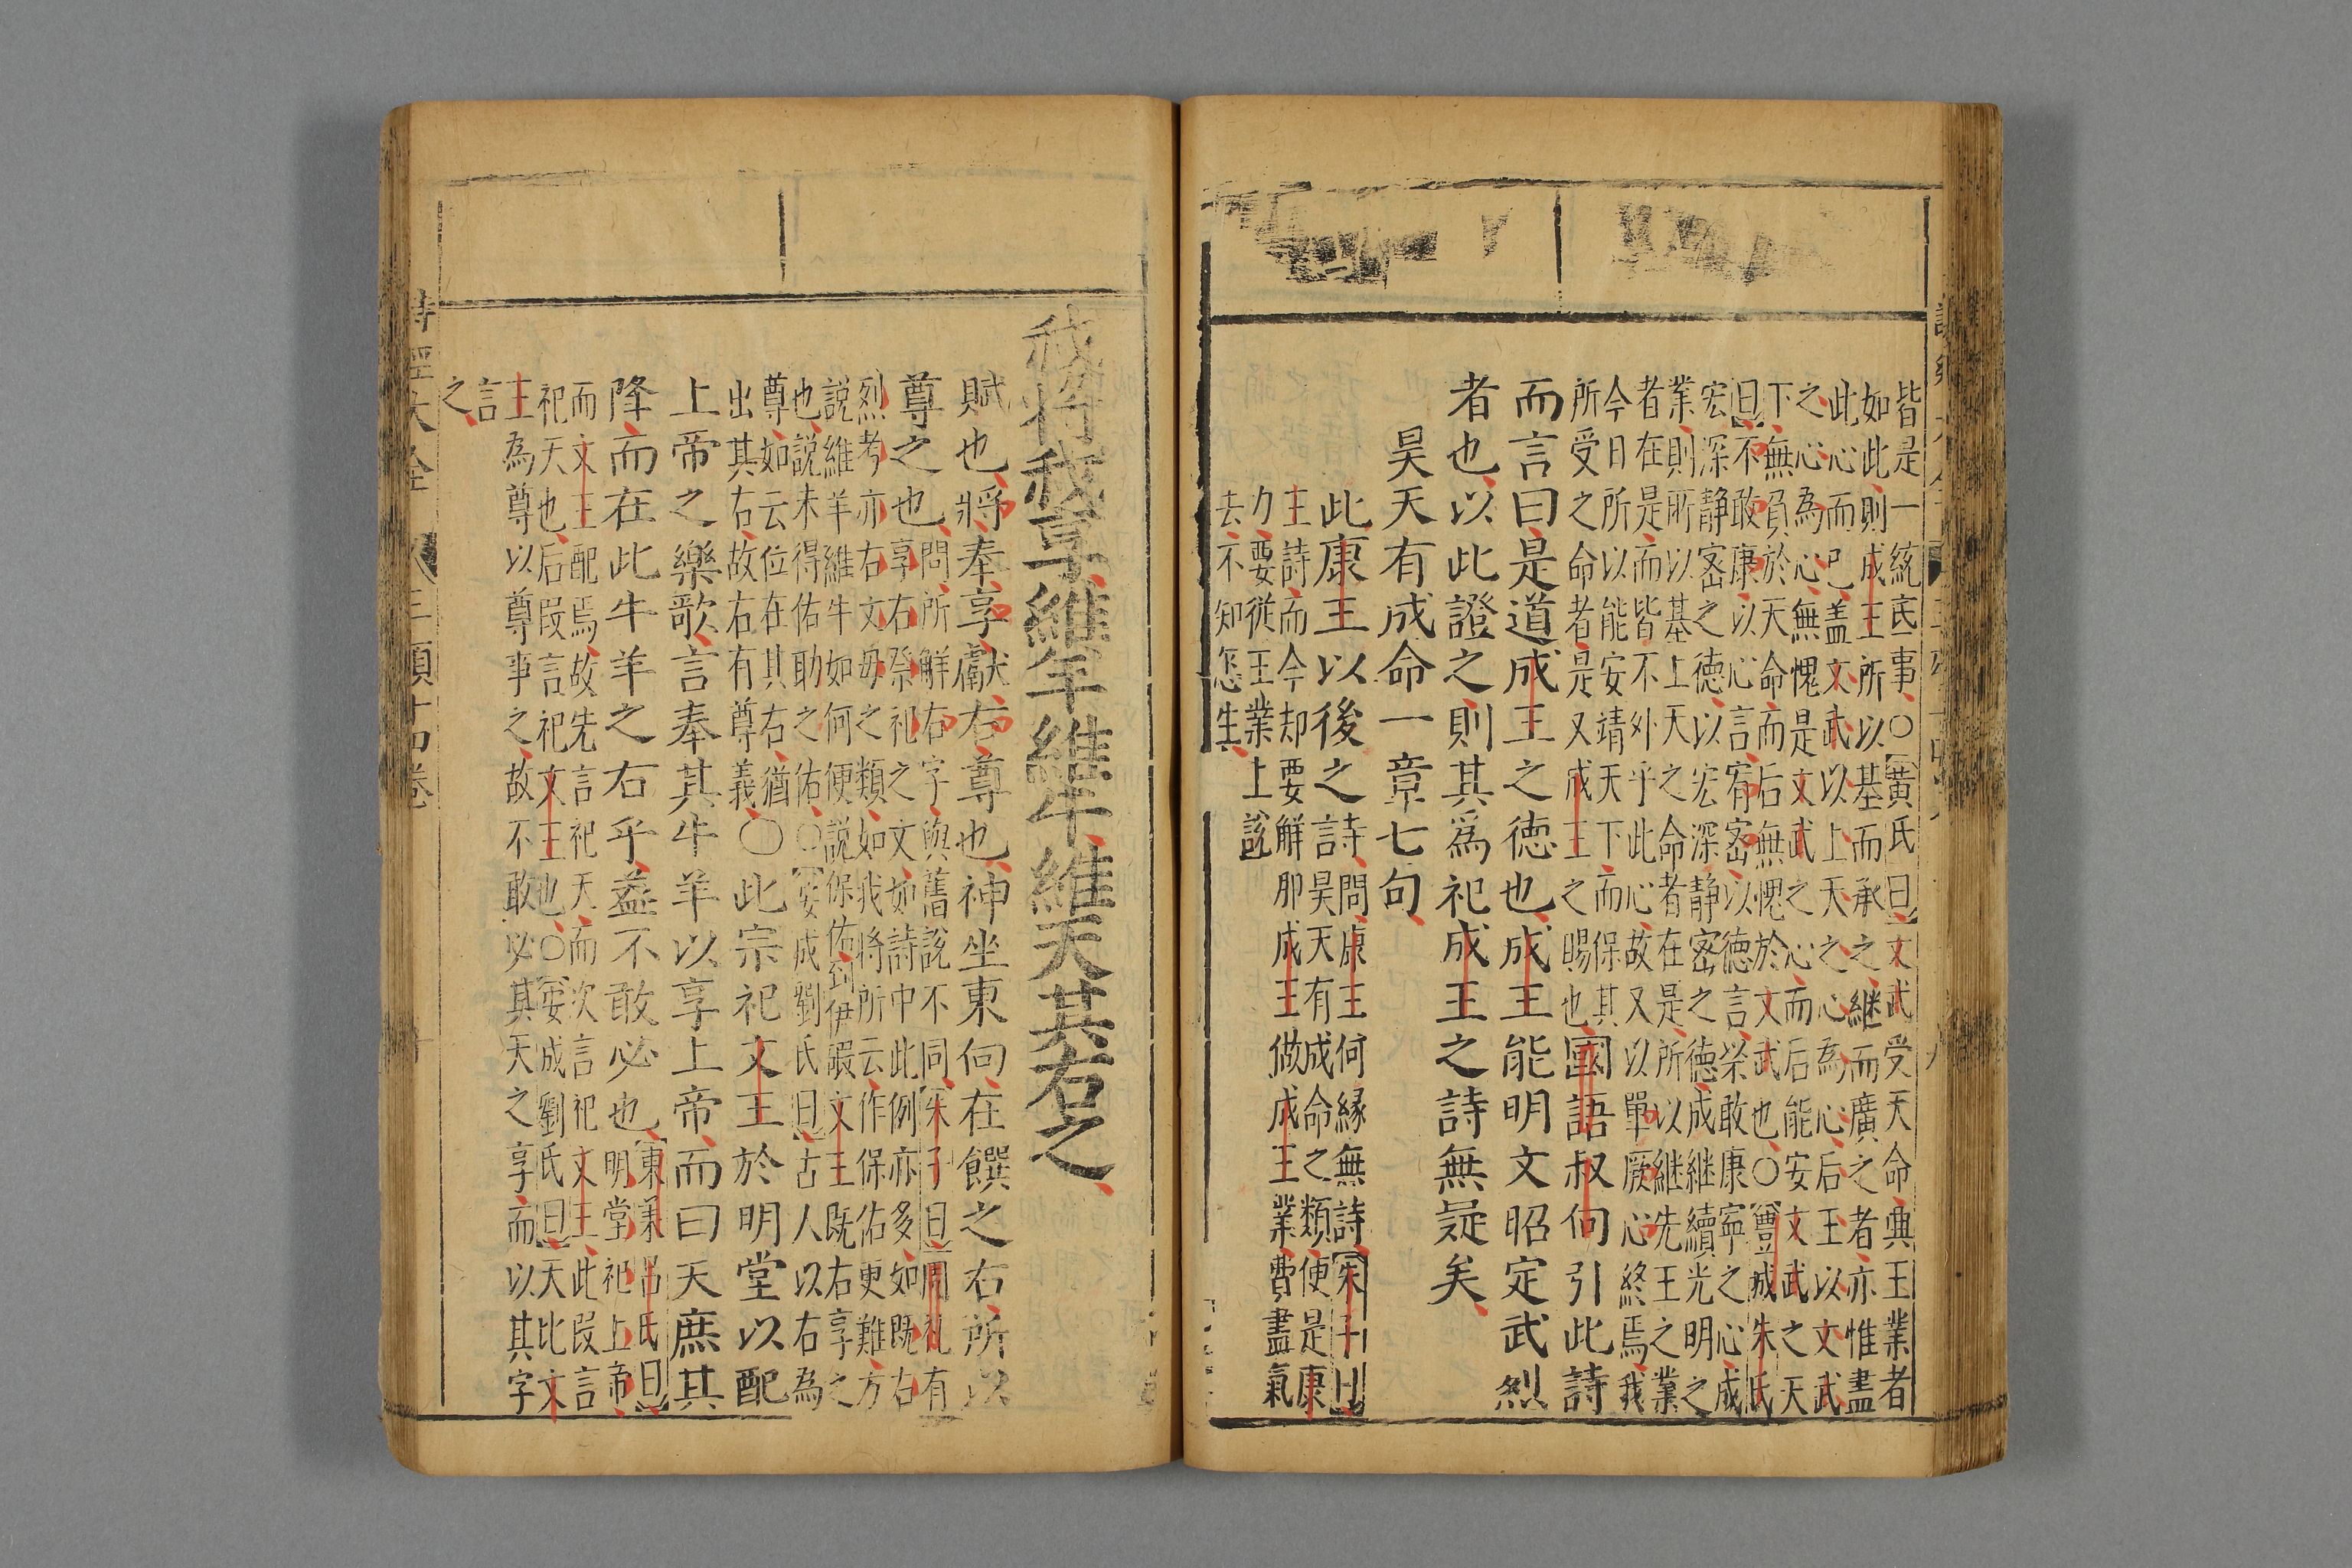 皆是一統底事○黃氏曰文武受天命典王業者
如此則成王所以基而承之継而廣之者亦惟盡
此心而已盖文武以上天之心為心后王以文武
之心為心無愧是文武之心而后能安文武之天
下無負於天命而后無愧於文武也○豐城朱氏
曰不敢康以心言宥宻以德言榮敢康寧之心成
宏深静宻之德以宏深静宻之德成継續光明之
業則所以基上天之命者在是所以継先王之業
者在是而皆不外乎此心故又以單厥心終焉我
今日所以能安靖天下而保其
所受之命者是又成王之賜也
國語叔向引此詩
而言曰是道成王之德也成王能明文昭定武烈
者也以此證之則其為祀成王之詩無疑矣
昊天有成命一章七句
此康王以後之詩
問康王何緣無詩朱子曰
昊天有成命之類便是康
王詩而今却要解那成王做成王業費盡氣
力要從王業上說
去不知怎生
我將我享維羊維牛維天其右之
賦也將奉享獻右尊也神坐東向在饌之右所以
尊之也
問所解右字與舊說不同朱子曰周礼有
享右祭祀之文如詩中此例亦多如既右
烈考亦右文母之類如我將所云作保佑更難方
說維羊維牛如何便說保佑到伊嘏文王既右享之
也說未得佑助之佑○安成劉氏曰古人以右為
尊如云位在其右猶
出其右故右有尊義
○此宗祀文王於明堂以配
上帝之樂歌言奉其牛羊以享上帝而曰天庶其
降而在此牛羊之右乎葢不敢必也
東莱吕氏曰
明堂祀上帝
而文王配焉故先言祀天而次言祀文王此叚言
祀天也后叚言祀文王也○安成劉氏曰天比文
王為尊以尊事之故不敢必其天之享而以其字
言
之
詩經大全
三頌十四卷